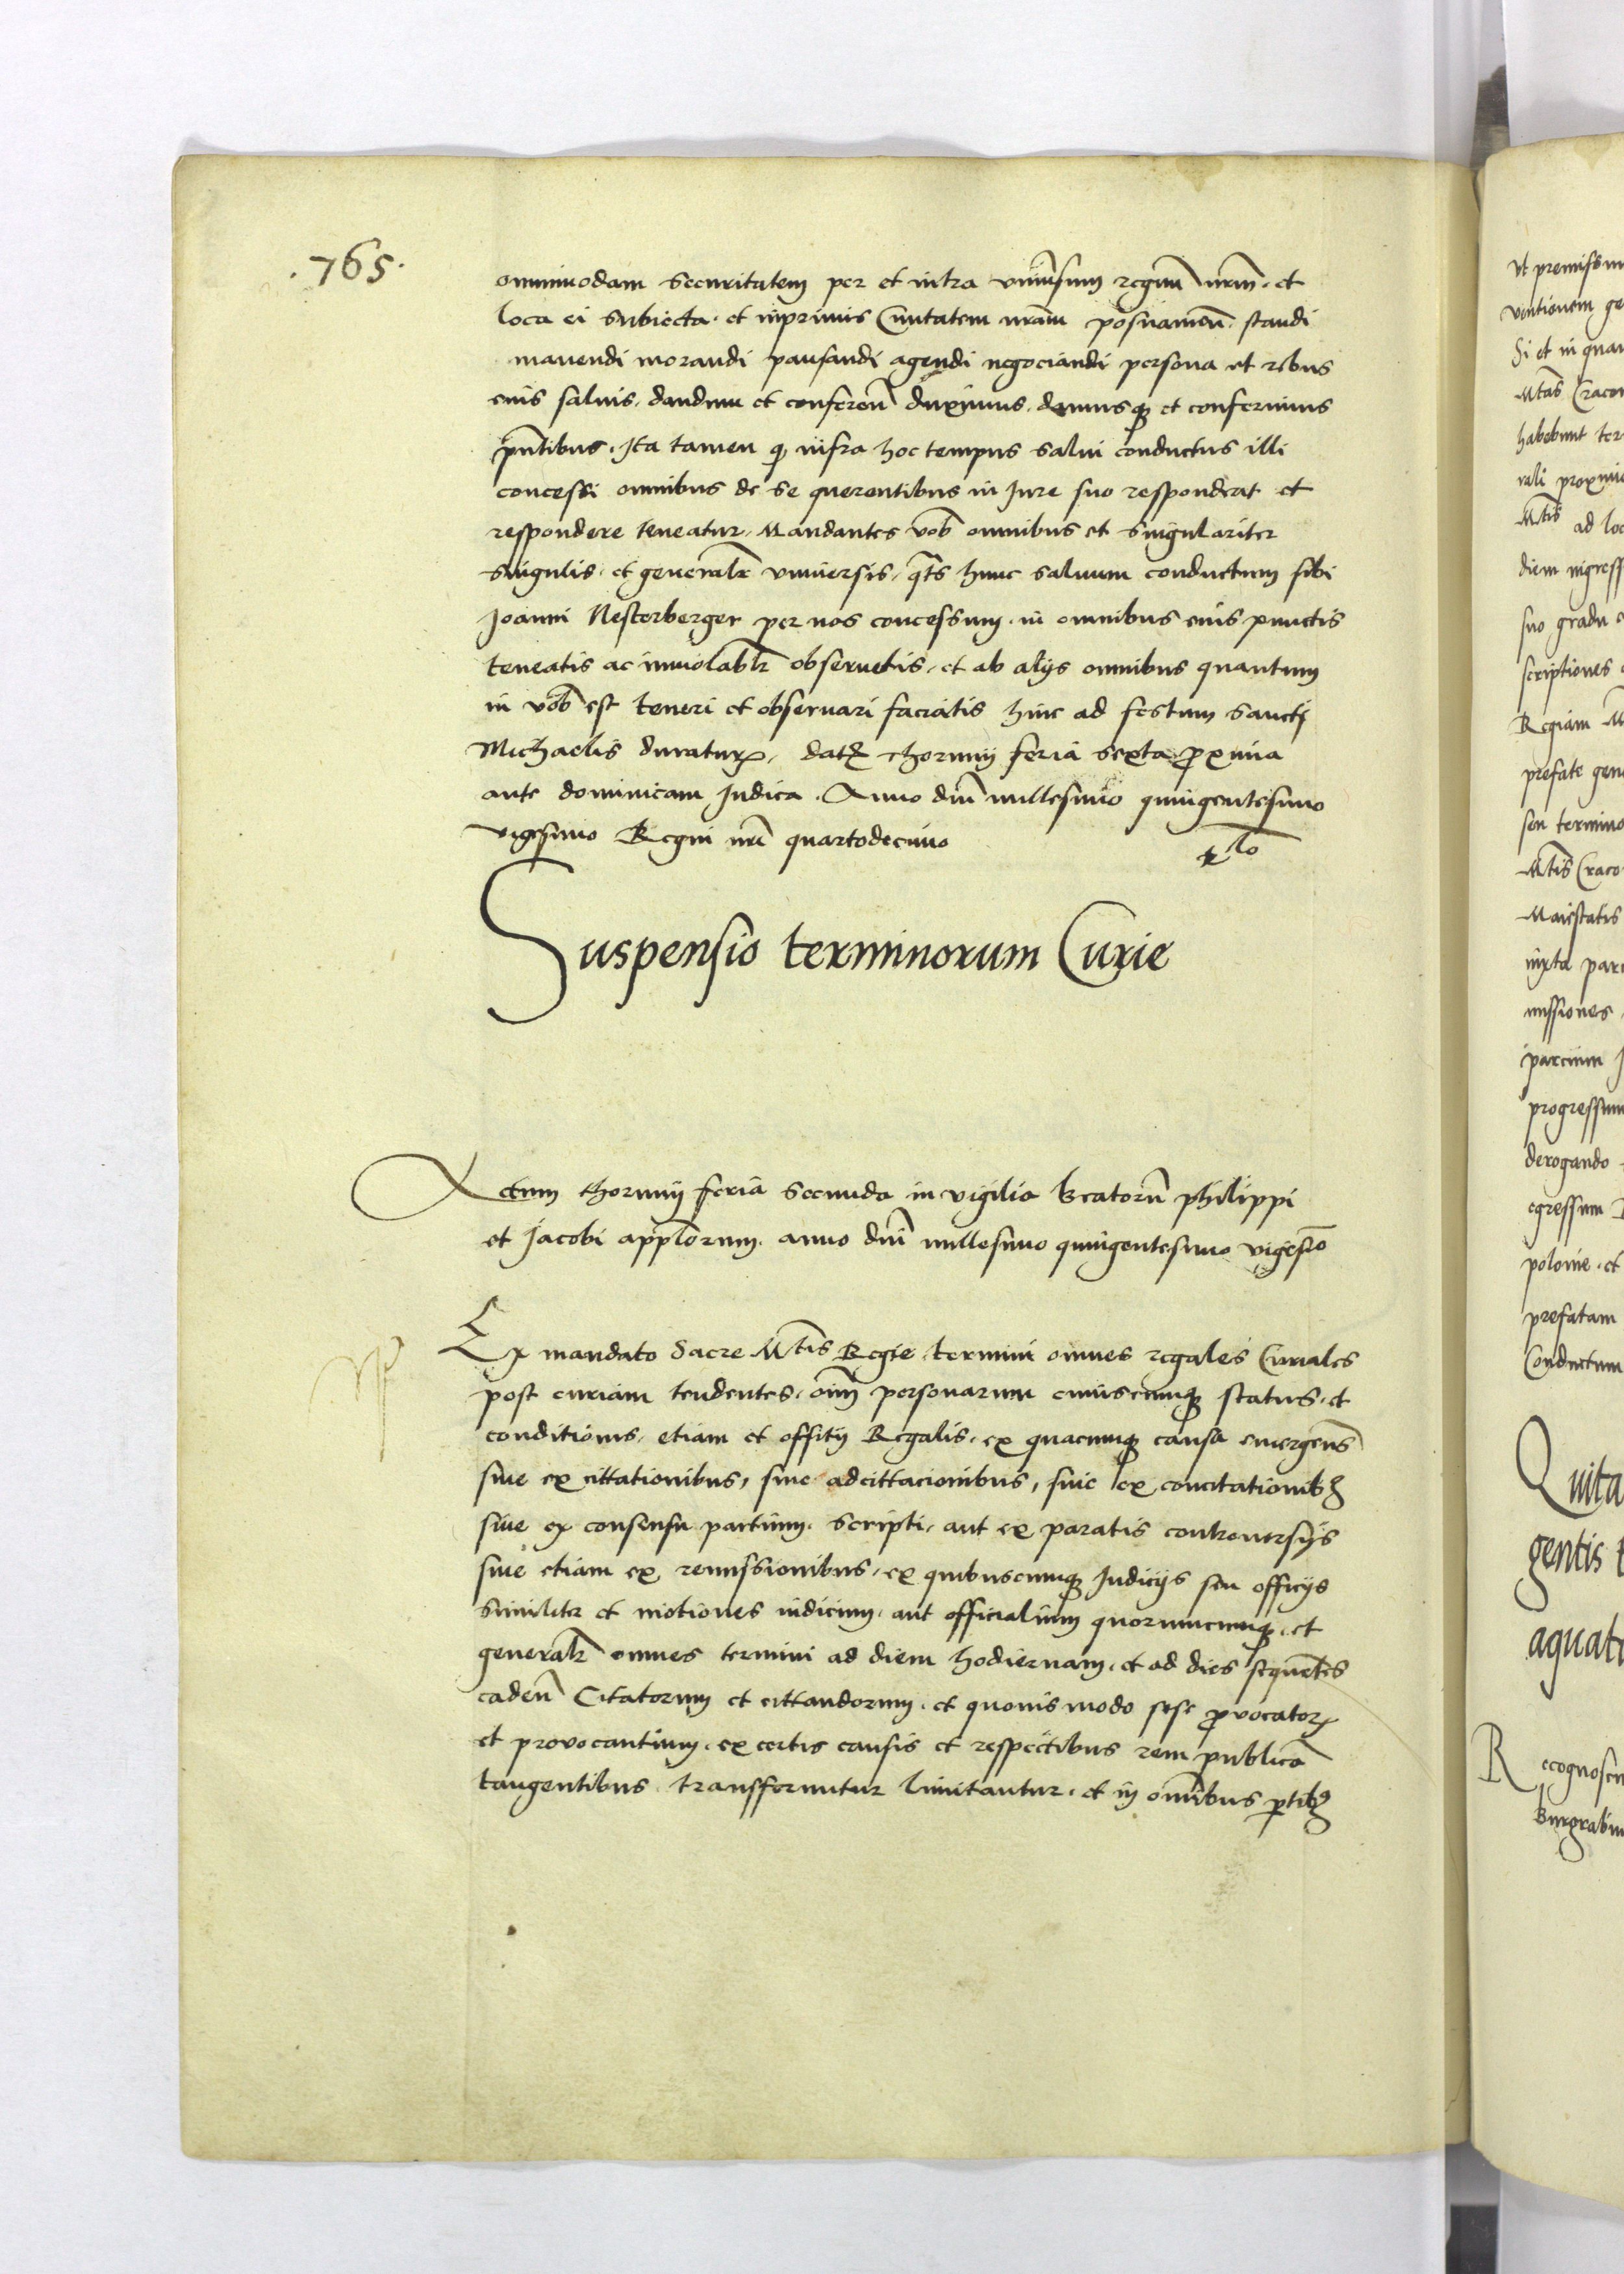 .765.
omnimodam securitatem per et intra uniusum regnu nrm. et
loca ei subiecta. et inprimis Ciuitatem nram posnanien. standi
manendi morandi pausandi agendi negociandi persona et rebus
eius saluis. dandum et conferen duximus. damusq et conferimus
pntibus. Ita tamen q infra hoc tempus salui conductus illi
concessi omnibus de se querentibus in Jure suo respondeat et
respondere teneatur. Mandantes vob omnibus et singulariter
singulis. et generalr vniuersis. qts hunc saluum conductum sibi
Joanni Nesterberger per nos concessum. in omnibus eius punctis
teneatis ac inuiolablr obseruetis. et ab alijs omnibus quantum
in vob est teneri et obseruari faciatis hinc ad festum sancti
Michaelis duratur. dat Thorunij feria sexta proxima
ante dominicam Judica. Anno dni millesimo quingentesimo
vigesimo Regni nri quartodecimo
Suspensio terminorum Curie
Actum thorunij feria secunda in vigilia beatoru philippi
et Jacobi applorum. anno dni millesimo quingentesimo vigesio
Ex mandato Sacre Mtis Regie termini omnes regales Curiales
post curiam tendentes. oim personarum cuiuscumq status. et
conditionis. etiam et offitij Regalis. ex quacumq causa emergens
siue ex cittationibus, siue adcittacionibus, siue ex concitationib
siue ex consensu partium. scripti. aut ex paratis controuersijs
siue etiam ex remissionibus. ex quibuscumq Judicijs seu officijs
similitr et motiones iudicum. aut officialium quorumcumq. et
generalr omnes termini ad diem hodiernam. et ad dies sequetes
caden Citatorum et cittandorum. et quouis modo sese prouocator
et prouocantium. ex certis causis et respectibus rem publica
tangentibus transferuntur limitantur. et in omibus ptib
vt premissum
Si et in quan
Mtas Craco
habebunt ter
rali proxime
Mtis ad loc
diem ingress
suo gradu
scriptiones
Regiam
prefate gen
seu termino
Mtis Craco
Maiestatis
iuxta par
missiones
parcium
progressum
derogando
egressum
polonie. et
prefatam
Conductum
Quita
gentis
aquat
Recognosci
Burgrabiu